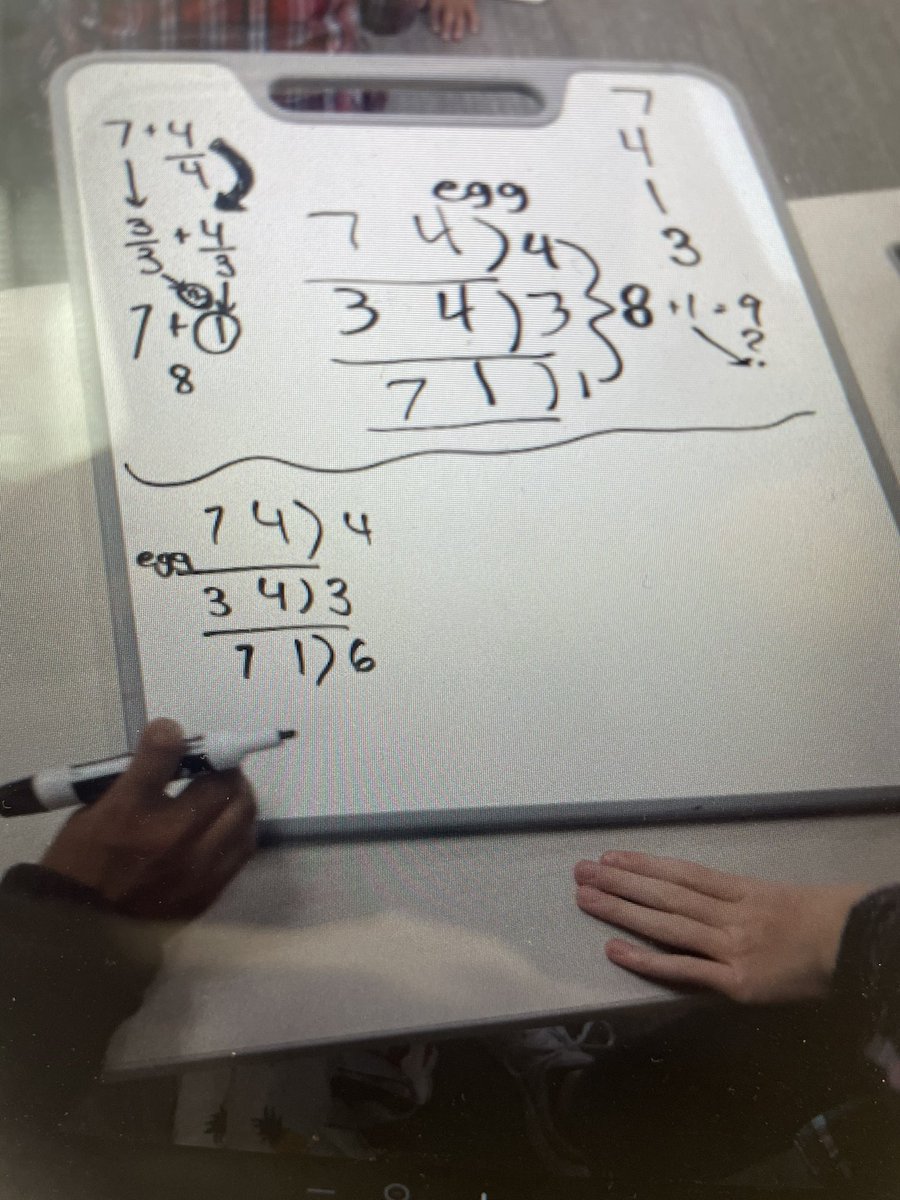 7 + 4/4
3/3 + 4/3
7 + 1
8
egg
7 4 ) 4
3 4 ) 3
7 1 ) 1
8 + 1 = 9
?
7
4
1
3
7 4 ) 4
egg
3 4 ) 3
7 1 ) 6